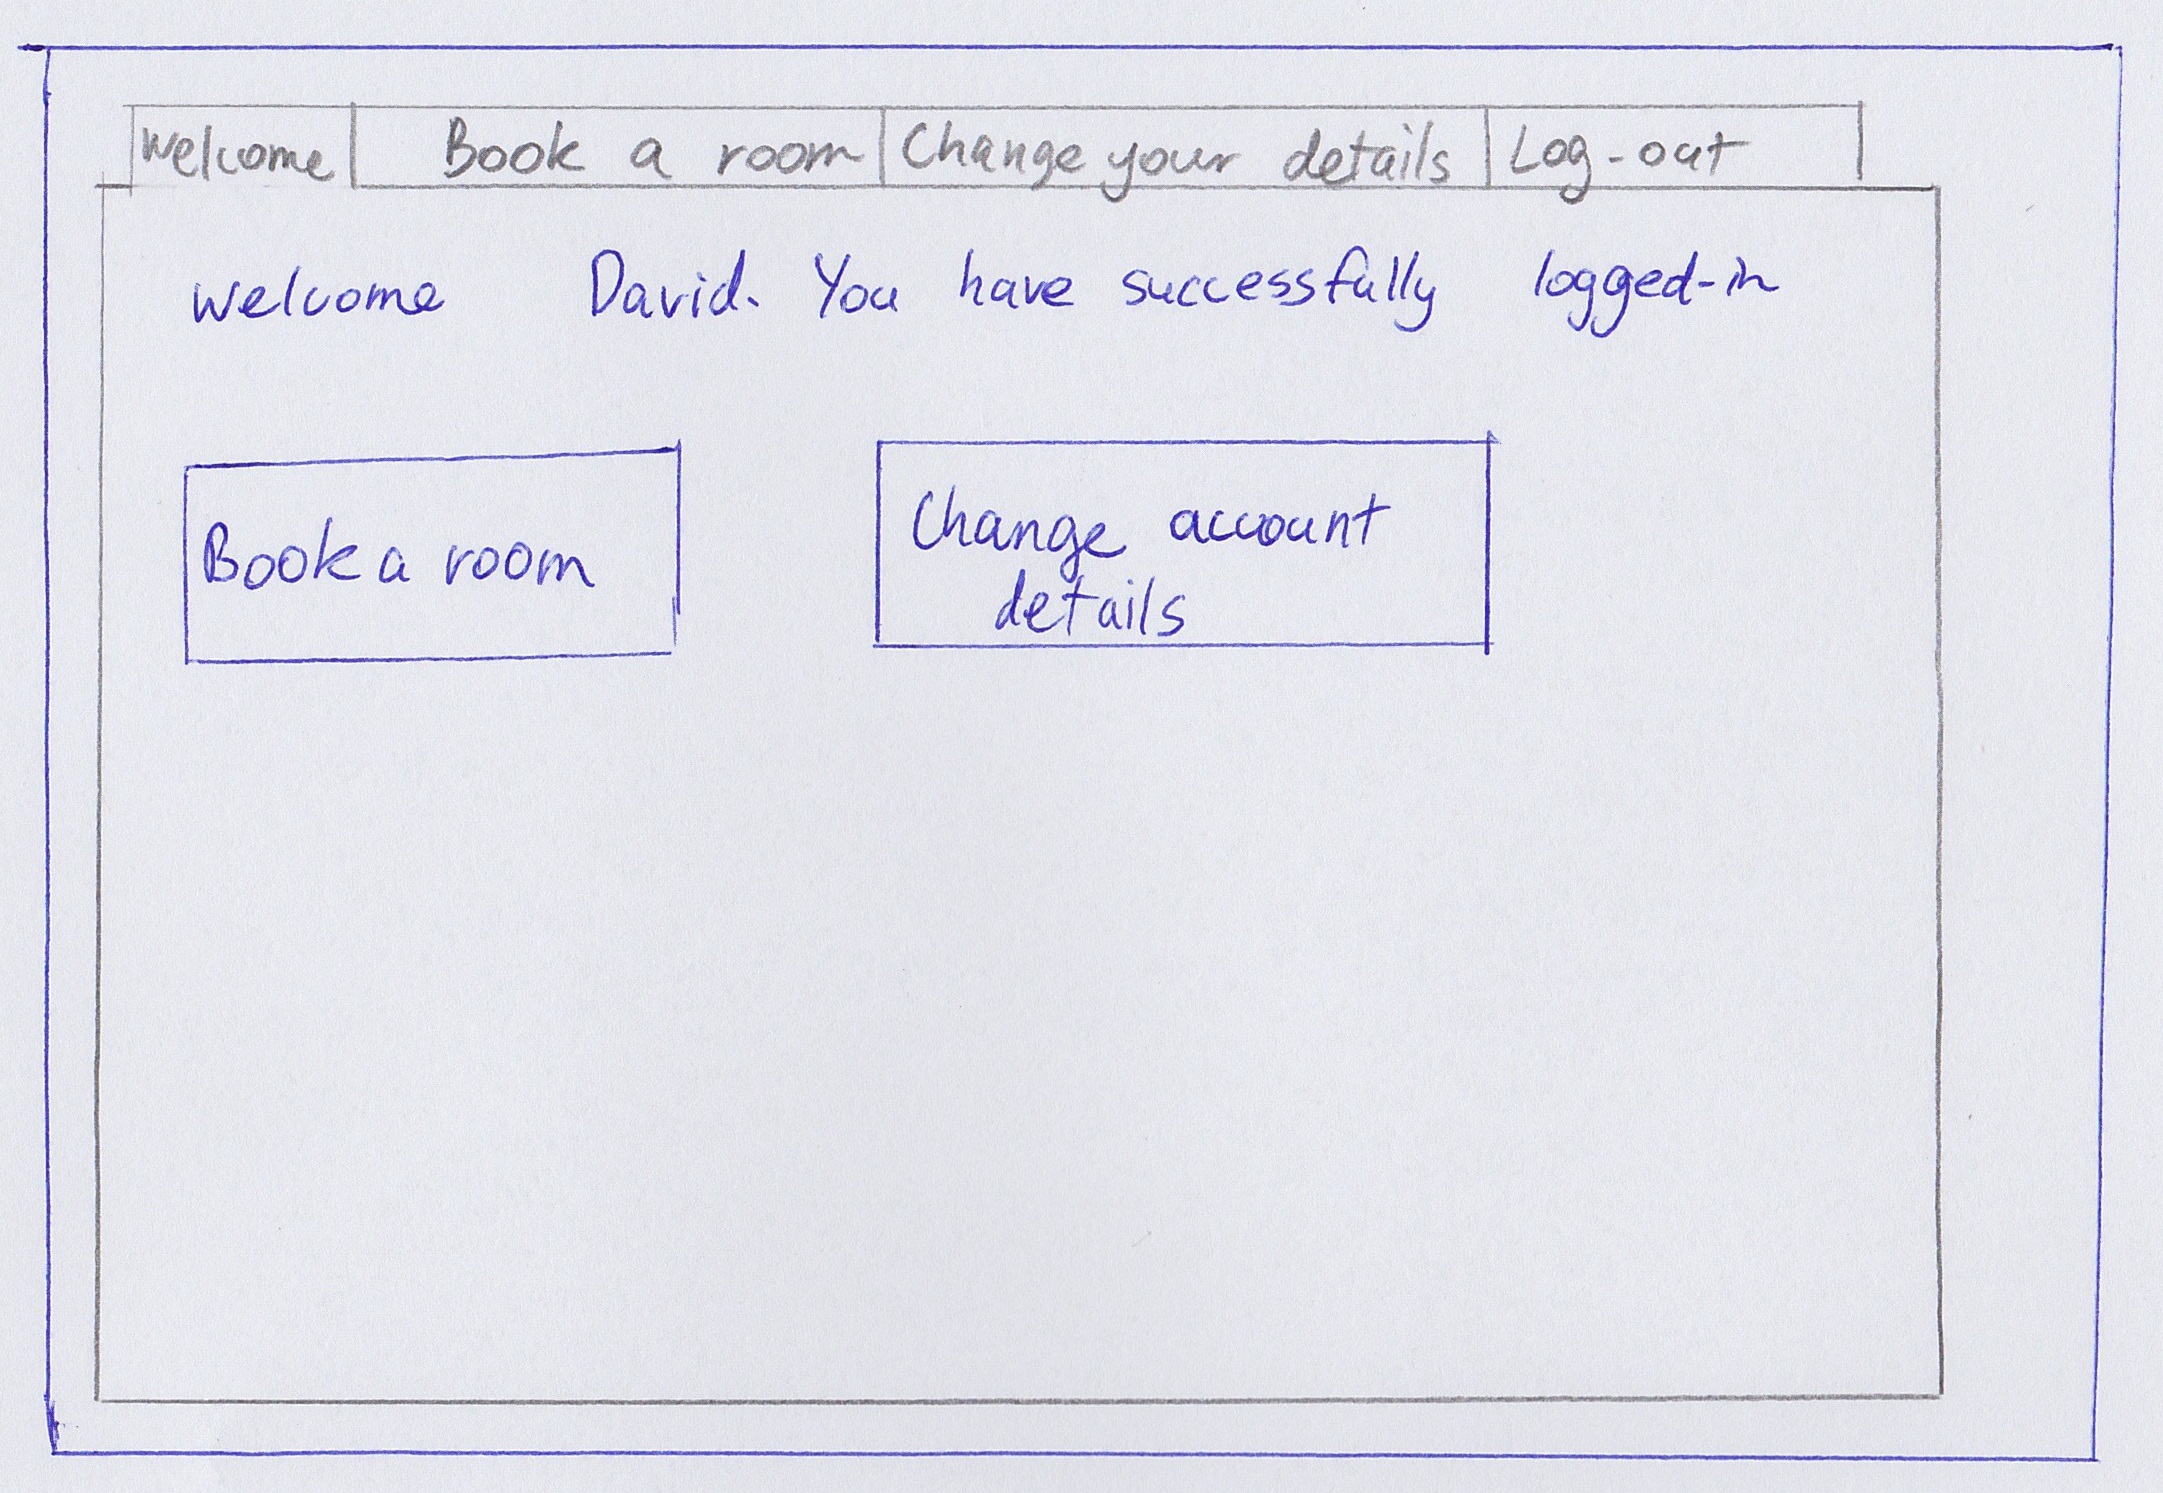 Welcome Book a room Change your details Log-out
Welcome David. You have successfully logged-in
Book a room
Change account
details